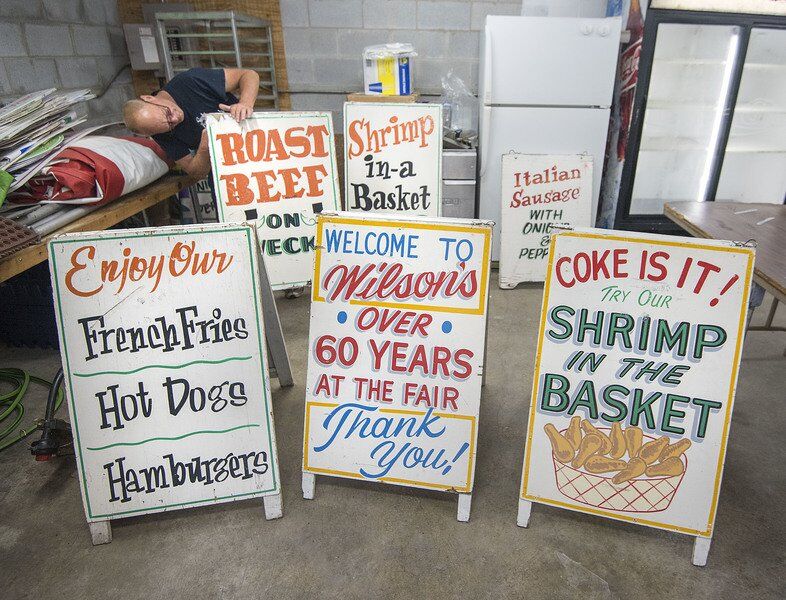 ROAST
BEEF
ON
WECK
Shrimp
in-a
Basket
Italian
Sausage
WITH
&
Enjoy Our
French Fries
Hot Dogs
Hamburgers
WELCOME TO
Wilson's
OVER
60 YEARS
AT THE FAIR
Thank
You!
COKE IS IT!
TRY OUR
SHRIMP
IN THE
BASKET